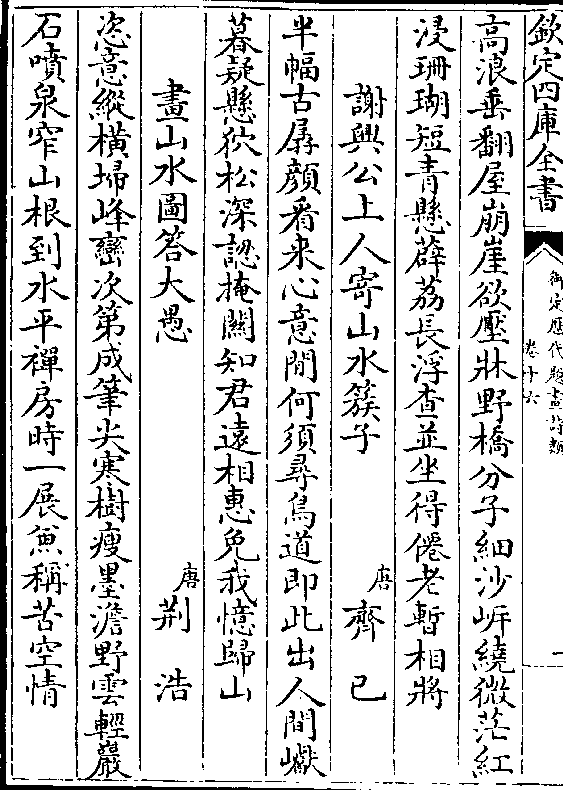 欽定四庫全書
御定歷代題畫詩類
卷十六
一
高浪垂翻屋崩崖欲壓牀野橋分子細沙岸繞微茫紅
浸珊瑚短青懸薜荔長浮查並坐得僊老暫相將
謝興公上人寄山水簇子
唐
齊己
半幅古孱顏看来心意閒何須尋鳥道即此出人間嶽
暮疑懸狖松深認掩關知君遠相惠免我憶歸山
畫山水圖答大愚
唐
荆浩
恣意縱橫埽峰巒次第成筆尖寒樹瘦墨澹野雲輕巖
石噴泉窄山根到水平禪房時一展兼稱苦空情